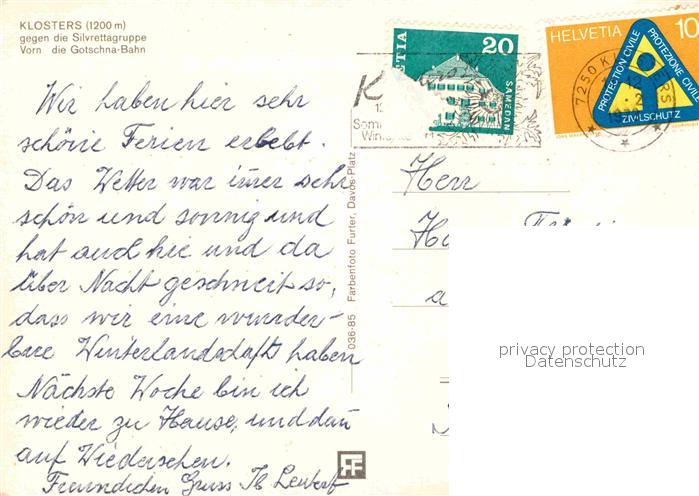 KLOSTERS (1200 m)
gegen die Silvrettagruppe
Vorn die Gotschna-Bahn
Wir haben hier sehr
schöne Ferien erlebt.
Das Wetter war immer sehr
schön und sonnig und
hat auch hie und da
über Nacht geschneit so,
dass wir eine wunder-
bare Winterlandschaft haben
Nächste Woche bin ich
wieder zu Hause, und dann
auf Wiedersehen.
Freundlichen Gruss Ib
036-85 Farbenfoto Furter, Davos-Platz
HELVETIA
20
SAMEDAN
HELVETIA 10
PROTECTION CIVILE
PROTEZIONE CIVILE
ZIVILSCHUTZ
7250 KLOSTERS
Herr
privacy protection
Datenschutz